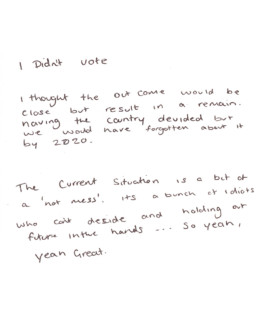 I Didn't vote
I thought the out come would be
close but result in a remain.
having the country devided but
we would have forgotten about it
by 2020.
The Current Situation is a bit of
a 'not mess'. its a bunch of idiots
who cant deside and holding out
future in the hands ... So yeah,
yeah Great.